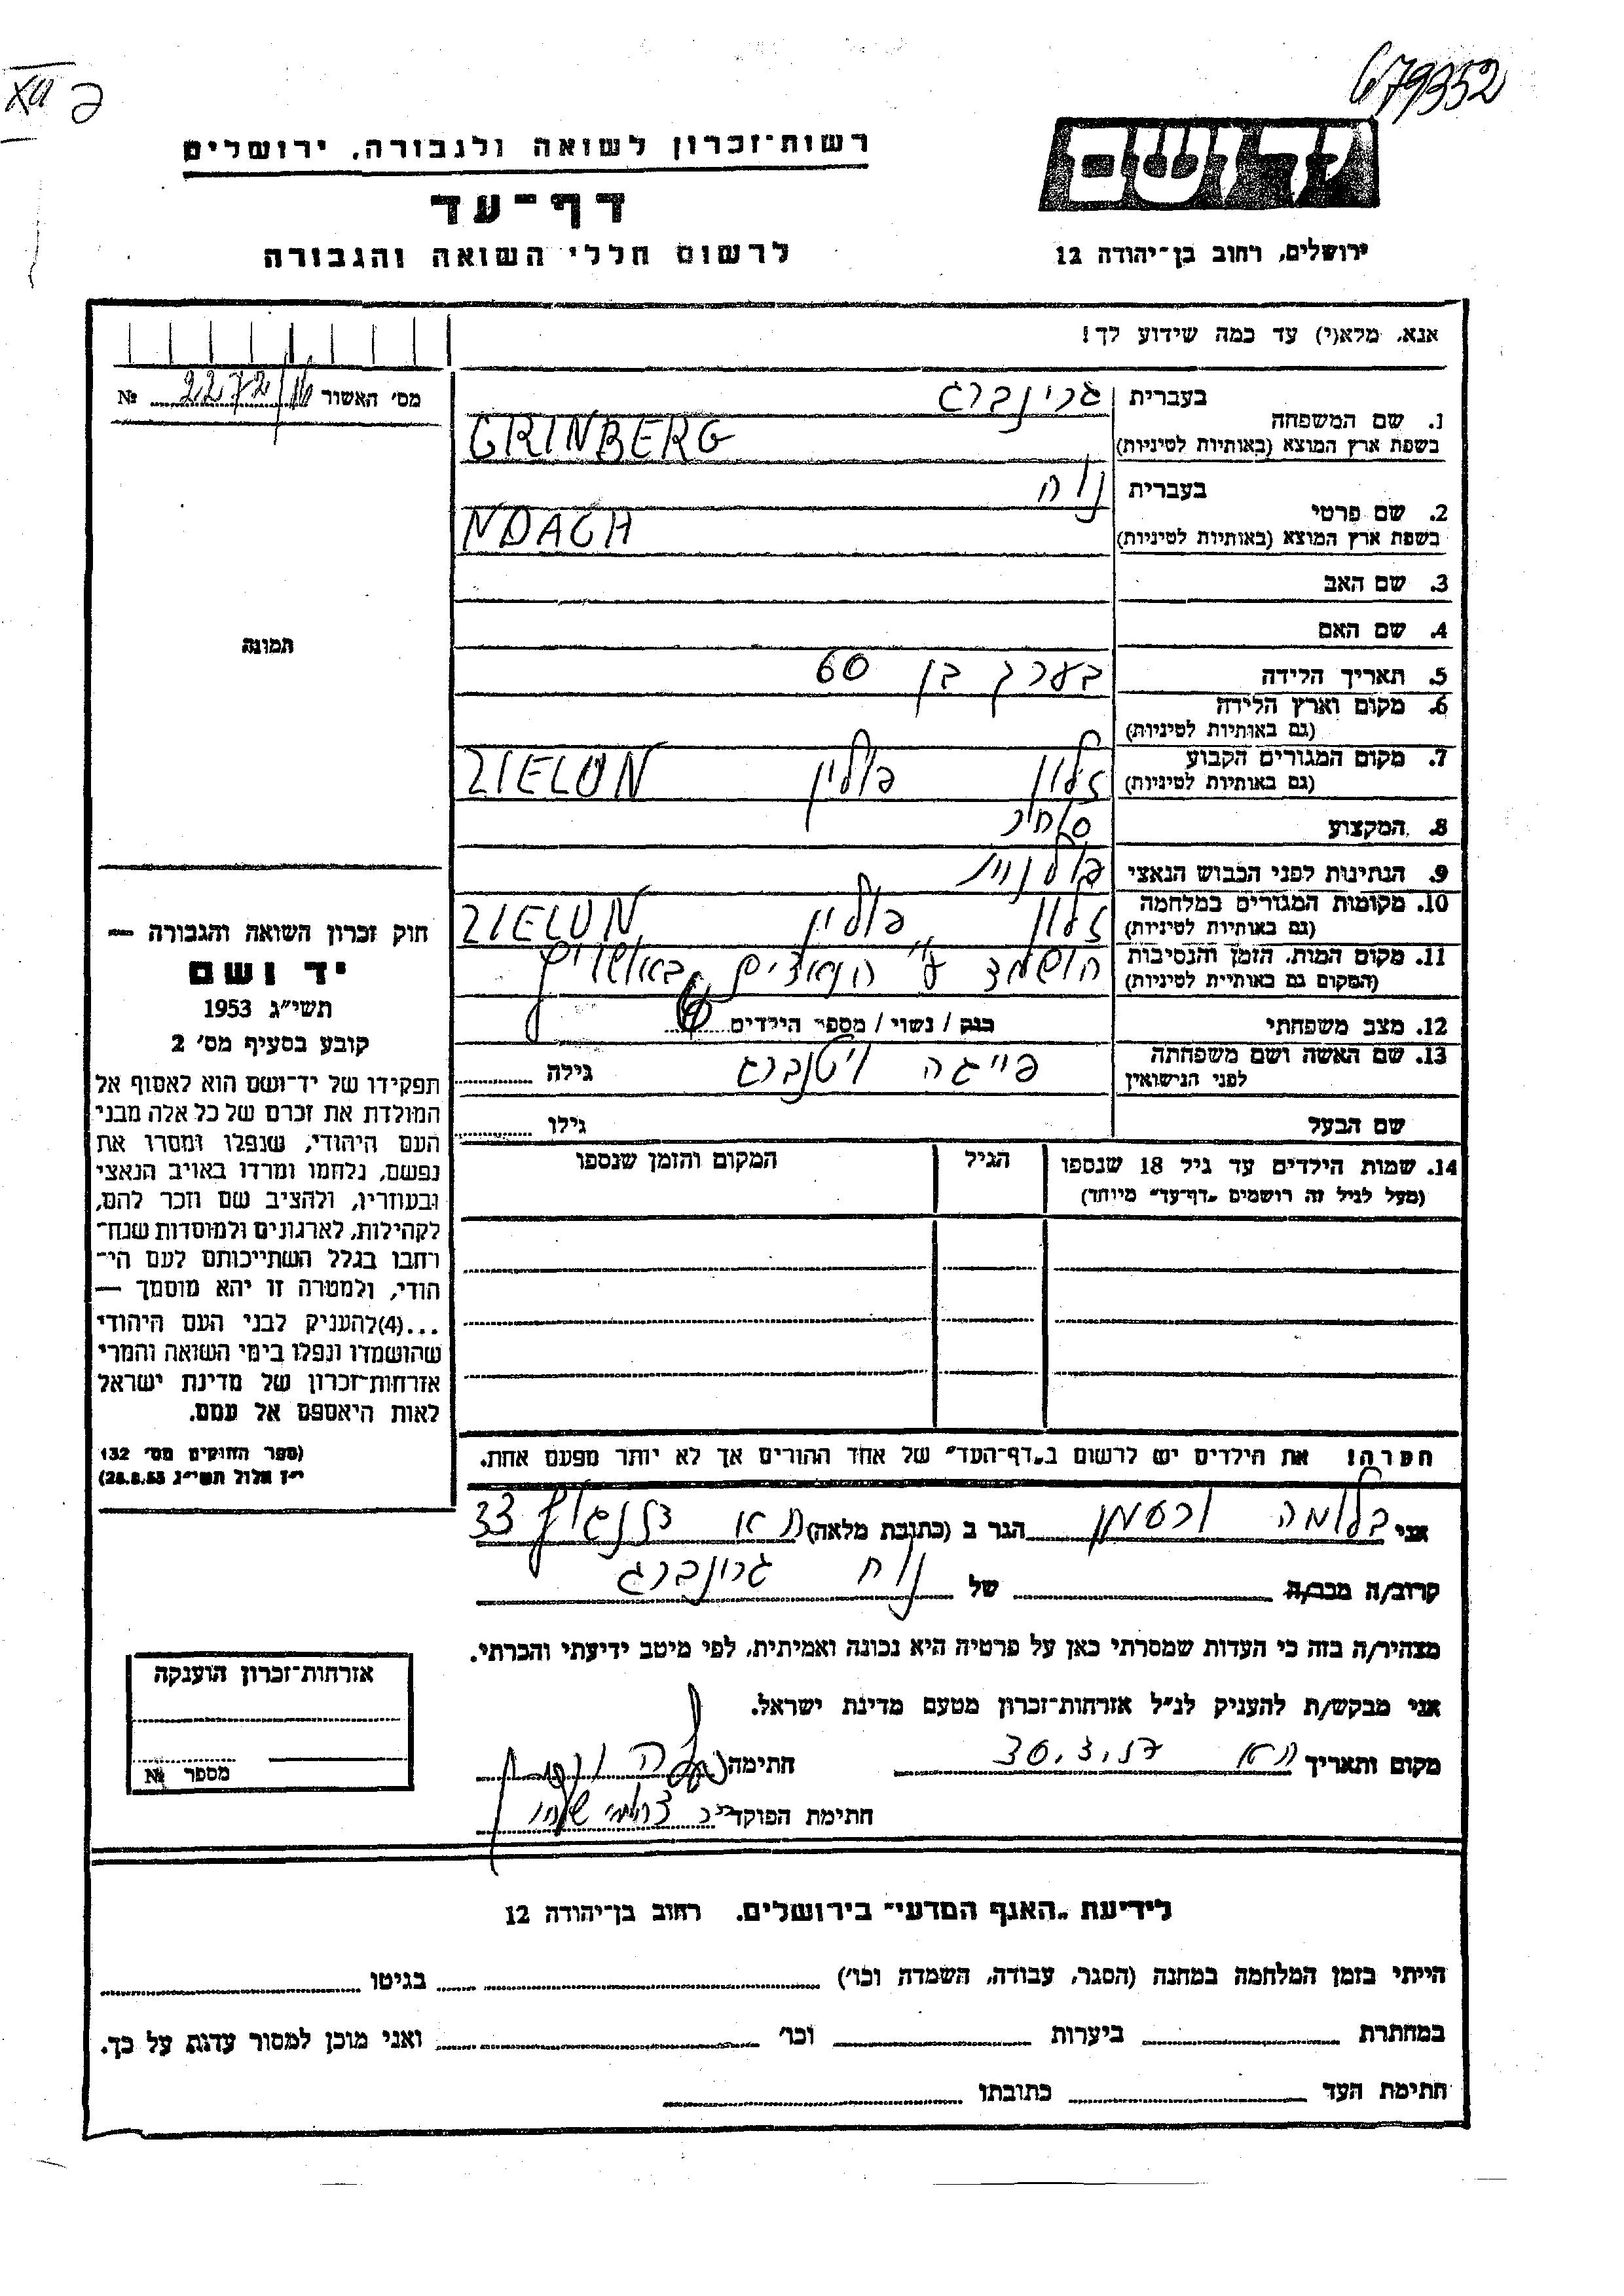 679352
XIII ב
יד ושם
ירושלים, רחוב בן־יהודה 12
רשות־זכרון לשואה ולגבורה, ירושלים
דף־עד
לרשום חללי השואה והגבורה
אנא, מלא(י) עד כמה שידוע לך!
מס׳ האשור 2272/16 №
1. שם המשפחה בעברית גרינברג
בשפת ארץ המוצא (באותיות לטיניות) GRINBERG
2. שם פרטי בעברית נוח
בשפת ארץ המוצא (באותיות לטיניות) NOACH
3. שם האב
4. שם האם
5. תאריך הלידה בערך בן 60
6. מקום וארץ הלידה
(גם באותיות לטיניות)
7. מקום המגורים הקבוע זלון פולין ZIELUN
(גם באותיות לטיניות)
8. המקצוע סוחר
9. הנתינות לפני הכבוש הנאצי פולנית
10. מקומות המגורים במלחמה זלון פולין ZIELUN
(גם באותיות לטיניות)
11. מקום המות, הזמן והנסיבות הושמד ע״י הנאצים באושויץ
(המקום גם באותיות לטיניות)
12. מצב משפחתי רווק / נשוי / מספר הילדים
13. שם האשה ושם משפחתה פייגה ויטנברג גילה
לפני הנישואין
שם הבעל גילו
14. שמות הילדים עד גיל 18 שנספו הגיל המקום והזמן שנספו
(מעל לגיל זה רושמים „דף־עד״ מיוחד)
תמונה
חוק זכרון השואה והגבורה —
יד ושם
תשי״ג 1953
קובע בסעיף מס׳ 2
תפקידו של יד־ושם הוא לאסוף אל
המולדת את זכרם של כל אלה מבני
העם היהודי, שנפלו ומסרו את
נפשם, נלחמו ומרדו באויב הנאצי
ובעוזריו, ולהציב שם וזכר להם,
לקהילות, לארגונים ולמוסדות שנח־
רחבו בגלל השתייכותם לעם הי־
הודי, ולמטרה זו יהא מוסמך —
...(4)להעניק לבני העם היהודי
שהושמדו ונפלו בימי השואה והמרי
אזרחות־זכרון של מדינת ישראל
לאות היאספם אל עמם.
(ספר החוקים מס׳ 132
י״ז אלול תשי״ג 28.8.53)
הערה! את הילדים יש לרשום ב„דף־העד״ של אחד ההורים אך לא יותר מפעם אחת.
אני בלומה ורטמן הגר ב (כתובת מלאה) ת״א 33
קרוב/ה מכר/ה של נוח גרונברג
מצהיר/ה בזה כי העדות שמסרתי כאן על פרטיה היא נכונה ואמיתית, לפי מיטב ידיעתי והכרתי.
אני מבקש/ת להעניק לנ״ל אזרחות־זכרון מטעם מדינת ישראל.
מקום ותאריך ת״א 30.3.57 חתימה
חתימת הפוקד
אזרחות־זכרון הוענקה
מספר №
לידיעת „האגף המדעי״ בירושלים. רחוב בן־יהודה 12
הייתי בזמן המלחמה במחנה (הסגר, עבודה, השמדה וכו׳) בגיטו
במחתרת ביערות וכו׳ ואני מוכן למסור עדות על כך.
חתימת העד כתובתו